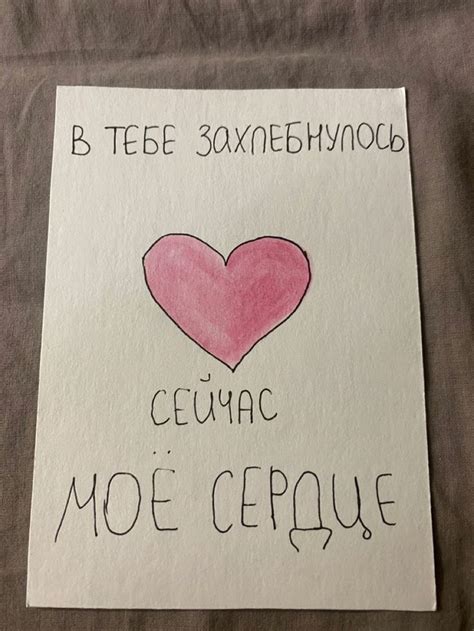 В ТЕБЕ ЗАХЛЕБНУЛОСЬ
СЕЙЧАС
МОЁ СЕРДЦЕ